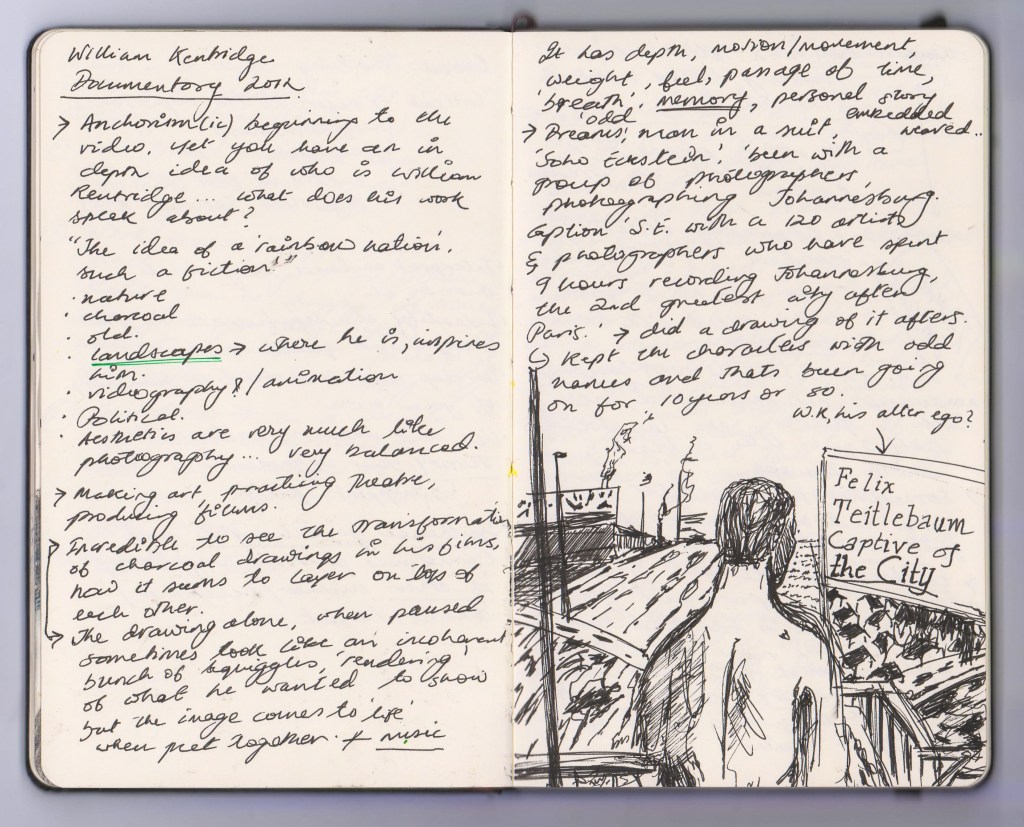 William Kentridge
Documentary 2012
→ Anachronism(ic) beginning to the
video. Yet you have an in
depth idea of who is William
Kentridge... what does his work
speak about?
"The idea of a 'rainbow nation'.
such a fiction!"
· nature
· charcoal
· old.
· landscapes → where he is, inspires
him.
· videography?/animation
· Political.
· Aesthetics are very much like
photography... very balanced.
→ Making art, practicing Theatre,
producing 'films.
Incredible to see the transformation
of charcoal drawings in his films,
how it seems to layer on tops of
each other.
→ The drawing alone, when paused
sometimes look like an incoherent
bunch of squiggles, 'rendering'
of what he wanted to show
but the image comes to 'life'
when put together. + music
It has depth, motion/movement,
'weight', feel, passage of time,
'breath', memory, personal story
embedded
weaved..
→ Dreams; 'odd man in a suit,
'Soho Eckstein'; 'been with a
group of photographers
photographing Johannesburg.
Caption 'S.E. with a 120 artists
& photographers who have spent
9 hours recording Johannesburg,
the 2nd greatest city after
Paris.' → did a drawing of it after.
Kept the characters with odd
names and thats been going
on for 10 years or so.
W.K, his alter ego?
Felix
Teitlebaum
Captive of
the City